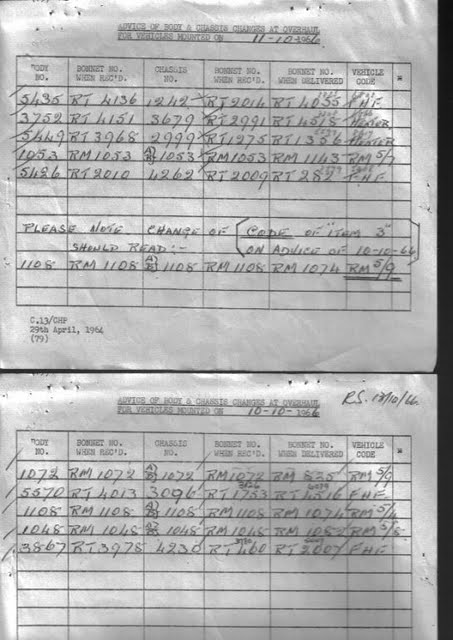 ADVICE OF BODY & CHASSIS CHANGES AT OVERHAUL
FOR VEHICLES MOUNTED ON 11-10-1966
BODY NO. BONNET NO. WHEN REC'D. CHASSIS NO. BONNET NO. WHEN REC'D. BONNET NO. WHEN DELIVERED VEHICLE CODE *
5435 RT 4136 1242 RT 2014 RT 4055 FHF
3752 RT 4151 3679 RT 2991 RT 4578 HEATER
5449 RT 3968 2999 RT 1275 RT 1356 HEATER
1053 RM 1053 1053 RM 1053 RM 1143 RM 5/7
5426 RT 2010 4262 RT 2009 RT 282 FHF
PLEASE NOTE CHANGE OF CODE OF "ITEM 3"
SHOULD READ:- ON ADVICE OF 10-10-66
1108 RM 1108 1108 RM 1108 RM 1074 RM 5/9
C.13/CHP
29th April, 1964
(79)
R.S. 13/10/66.
ADVICE OF BODY & CHASSIS CHANGES AT OVERHAUL
FOR VEHICLES MOUNTED ON 10-10-1966
BODY NO. BONNET NO. WHEN REC'D. CHASSIS NO. BONNET NO. WHEN REC'D. BONNET NO. WHEN DELIVERED VEHICLE CODE *
1072 RM 1072 1072 RM 1072 RM 835 RM 5/9
5570 RT 4013 3096 RT 1753 RT 4516 FHF
1108 RM 1108 1108 RM 1108 RM 1074 RM 5/4
1048 RM 1048 1048 RM 1048 RM 1082 RM 5/8
3867 RT 3978 4230 RT 460 RT 2007 FHF